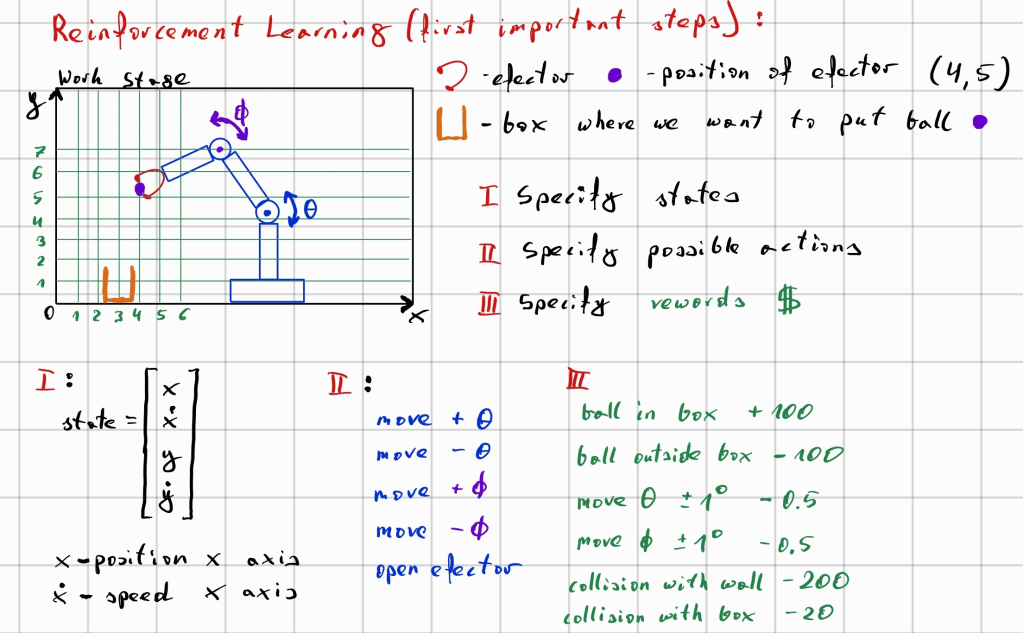 Reinforcement Learning (first important steps):
Work stage
y
ϕ
θ
7
6
5
4
3
2
1
0 1 2 3 4 5 6 x
-efector - position of efector (4,5)
- box where we want to put ball
I Specify states
II Specify possible actions
III Specify rewords $
I:
state = [x ẋ y ẏ]
x - position x axis
ẋ - speed x axis
II:
move + θ
move - θ
move + ϕ
move - ϕ
open efector
III
ball in box + 100
ball outside box - 100
move θ ±1° - 0.5
move ϕ ±1° - 0.5
collision with wall - 200
collision with box - 20